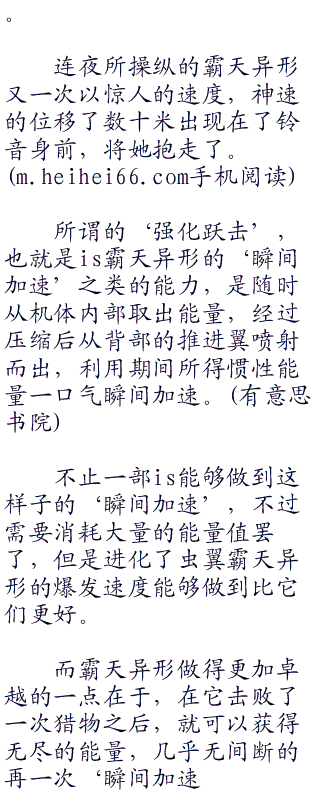 。
连夜所操纵的霸天异形
又一次以惊人的速度，神速
的位移了数十米出现在了铃
音身前，将她抱走了。
(m.heihei66.com手机阅读)
所谓的‘强化跃击’，
也就是is霸天异形的‘瞬间
加速’之类的能力，是随时
从机体内部取出能量，经过
压缩后从背部的推进翼喷射
而出，利用期间所得惯性能
量一口气瞬间加速。(有意思
书院)
不止一部is能够做到这
样子的‘瞬间加速’，不过
需要消耗大量的能量值罢
了，但是进化了虫翼霸天异
形的爆发速度能够做到比它
们更好。
而霸天异形做得更加卓
越的一点在于，在它击败了
一次猎物之后，就可以获得
无尽的能量，几乎无间断的
再一次‘瞬间加速